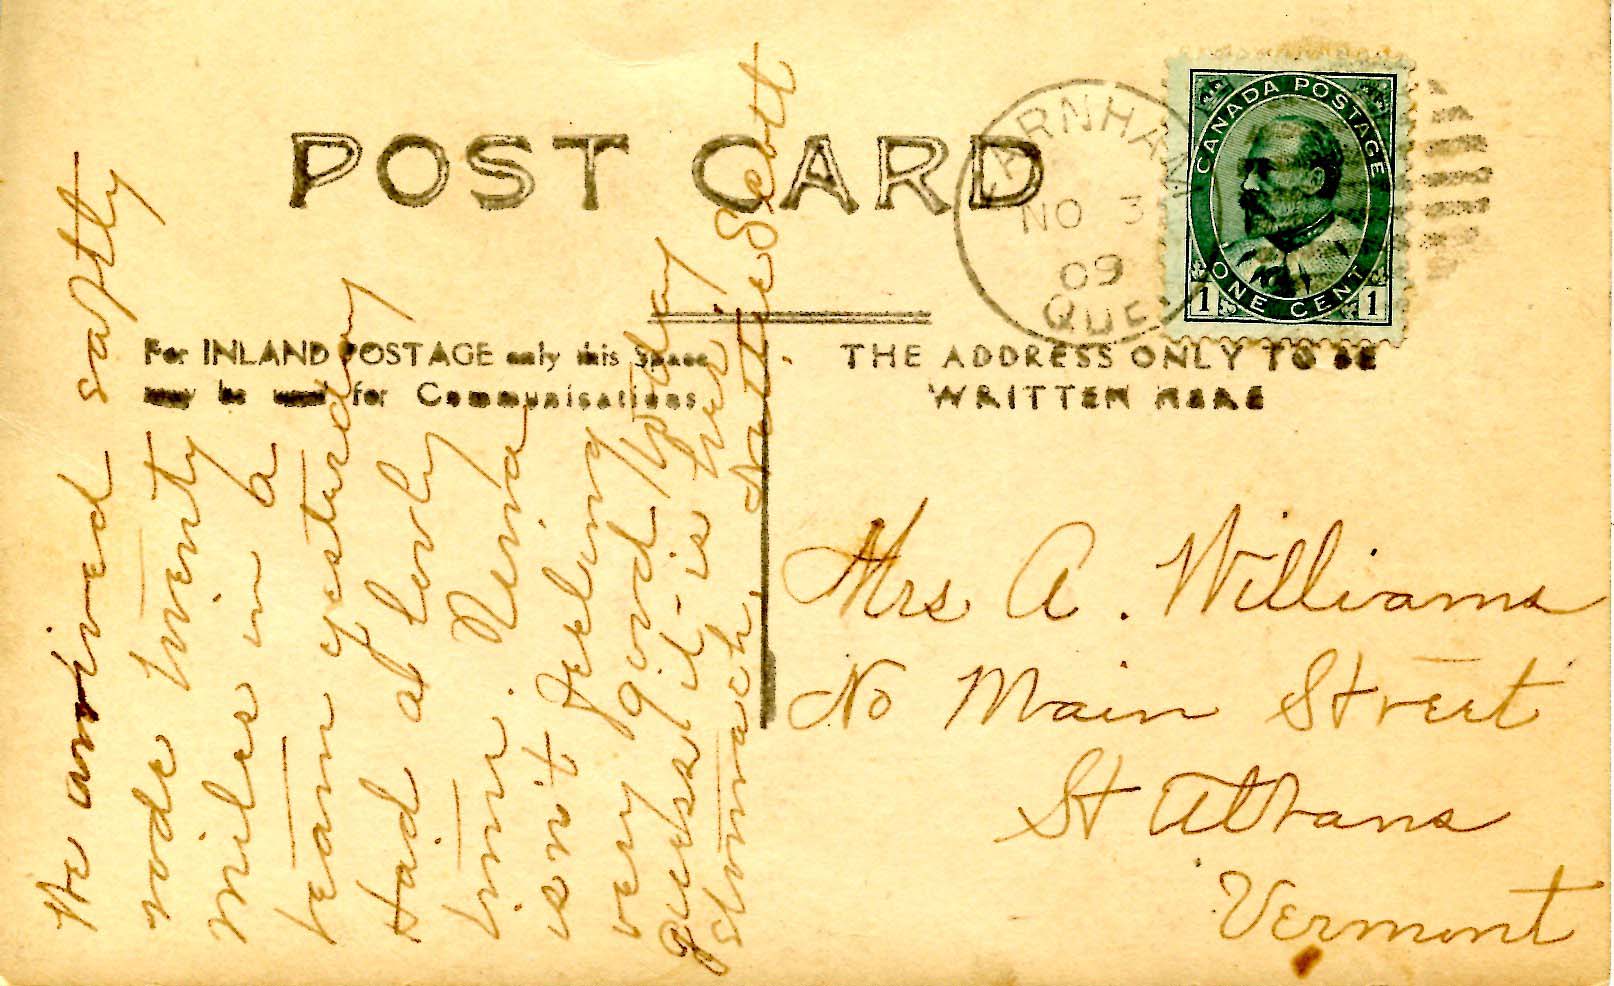 POST CARD
For INLAND POSTAGE only this Space
may be used for Communications.
THE ADDRESS ONLY TO BE
WRITTEN HERE
CANADA POSTAGE
ONE CENT
1 1
FARNHAM
NO 3
09
QUE
We arrived saftly
rode twenty
miles in a
team yesturday
had a lovly
time. Nina
isn't feeling
very good today
guess it is her
stomach. Nattie Scott
Mrs A. Williams
No Main Street
St Albans
Vermont